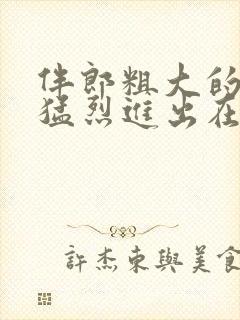 伴郎粗大的
猛烈進出在
許杰東與美食